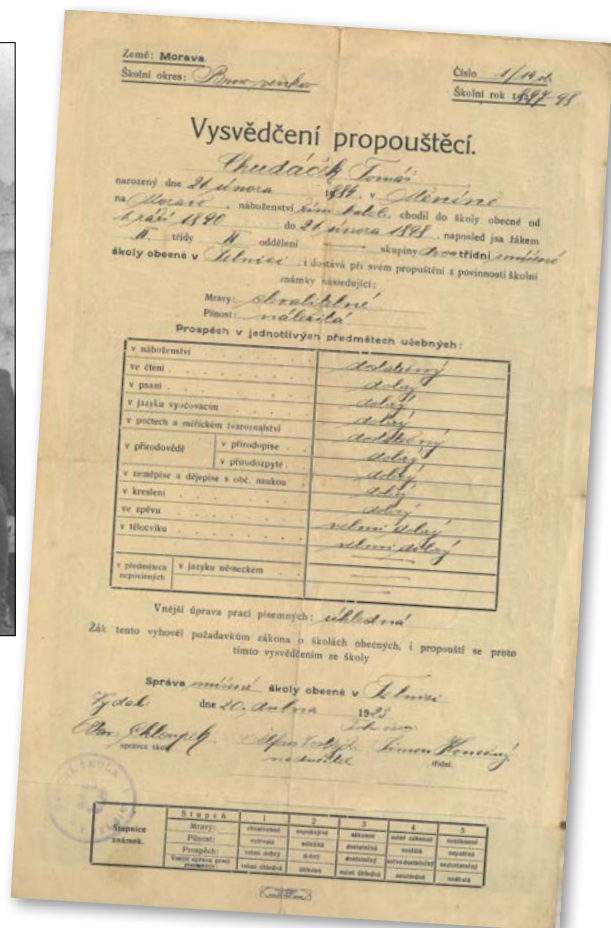 Země: Morava
Školní okres: Brno venkov
Číslo 1/14
Školní rok 1897-98
Vysvědčení propouštěcí.
Chudáček Tomáš
narozený dne 21. února 1884, v Měníně
na Moravě, náboženství řím. katol., chodil do školy obecné od
1. září 1890 do 21. února 1898, naposled jsa žákem
II. třídy II oddělení skupiny dvoutřídní smíšené
školy obecné v Telnici, i dostává při svém propuštění z povinnosti školní
známky následující:
Mravy: chvalitebné
Pilnost: náležitá
Prospěch v jednotlivých předmětech učebných:
v náboženství dostatečný
ve čtení dobrý
v psaní dobrý
v jazyku vyučovacím dobrý
v počtech a měřickém tvaroznalství dostatečný
v přírodovědě v přírodopise dobrý
v přírodozpyte dobrý
v zeměpise a dějepise s obč. naukou dobrý
v kreslení dobrý
ve zpěvu velmi dobrý
v tělocviku velmi dobrý
v předmětech nepovinných v jazyku německém
Vnější úprava prací písemných: úhledná
Žák tento vyhověl požadavkům zákona o školách obecných, i propouští se proto
tímto vysvědčením ze školy
Správa smíšené školy obecné v Telnici
dne 20. dubna 1923
Jan Chloupek Simon Konečný
správce školy třídní
Stupnice známek.
Stupeň 1 2 3 4 5
Mravy: chvalitebné uspokojivé zákonné méně zákonné nezákonné
Pilnost: vytrvalá náležitá dostatečná nestálá nepatrná
Prospěch: velmi dobrý dobrý dostatečný sotva dostatečný nedostatečný
Vnější úprava prací písemných: velmi úhledná úhledná méně úhledná neúhledná nedbalá